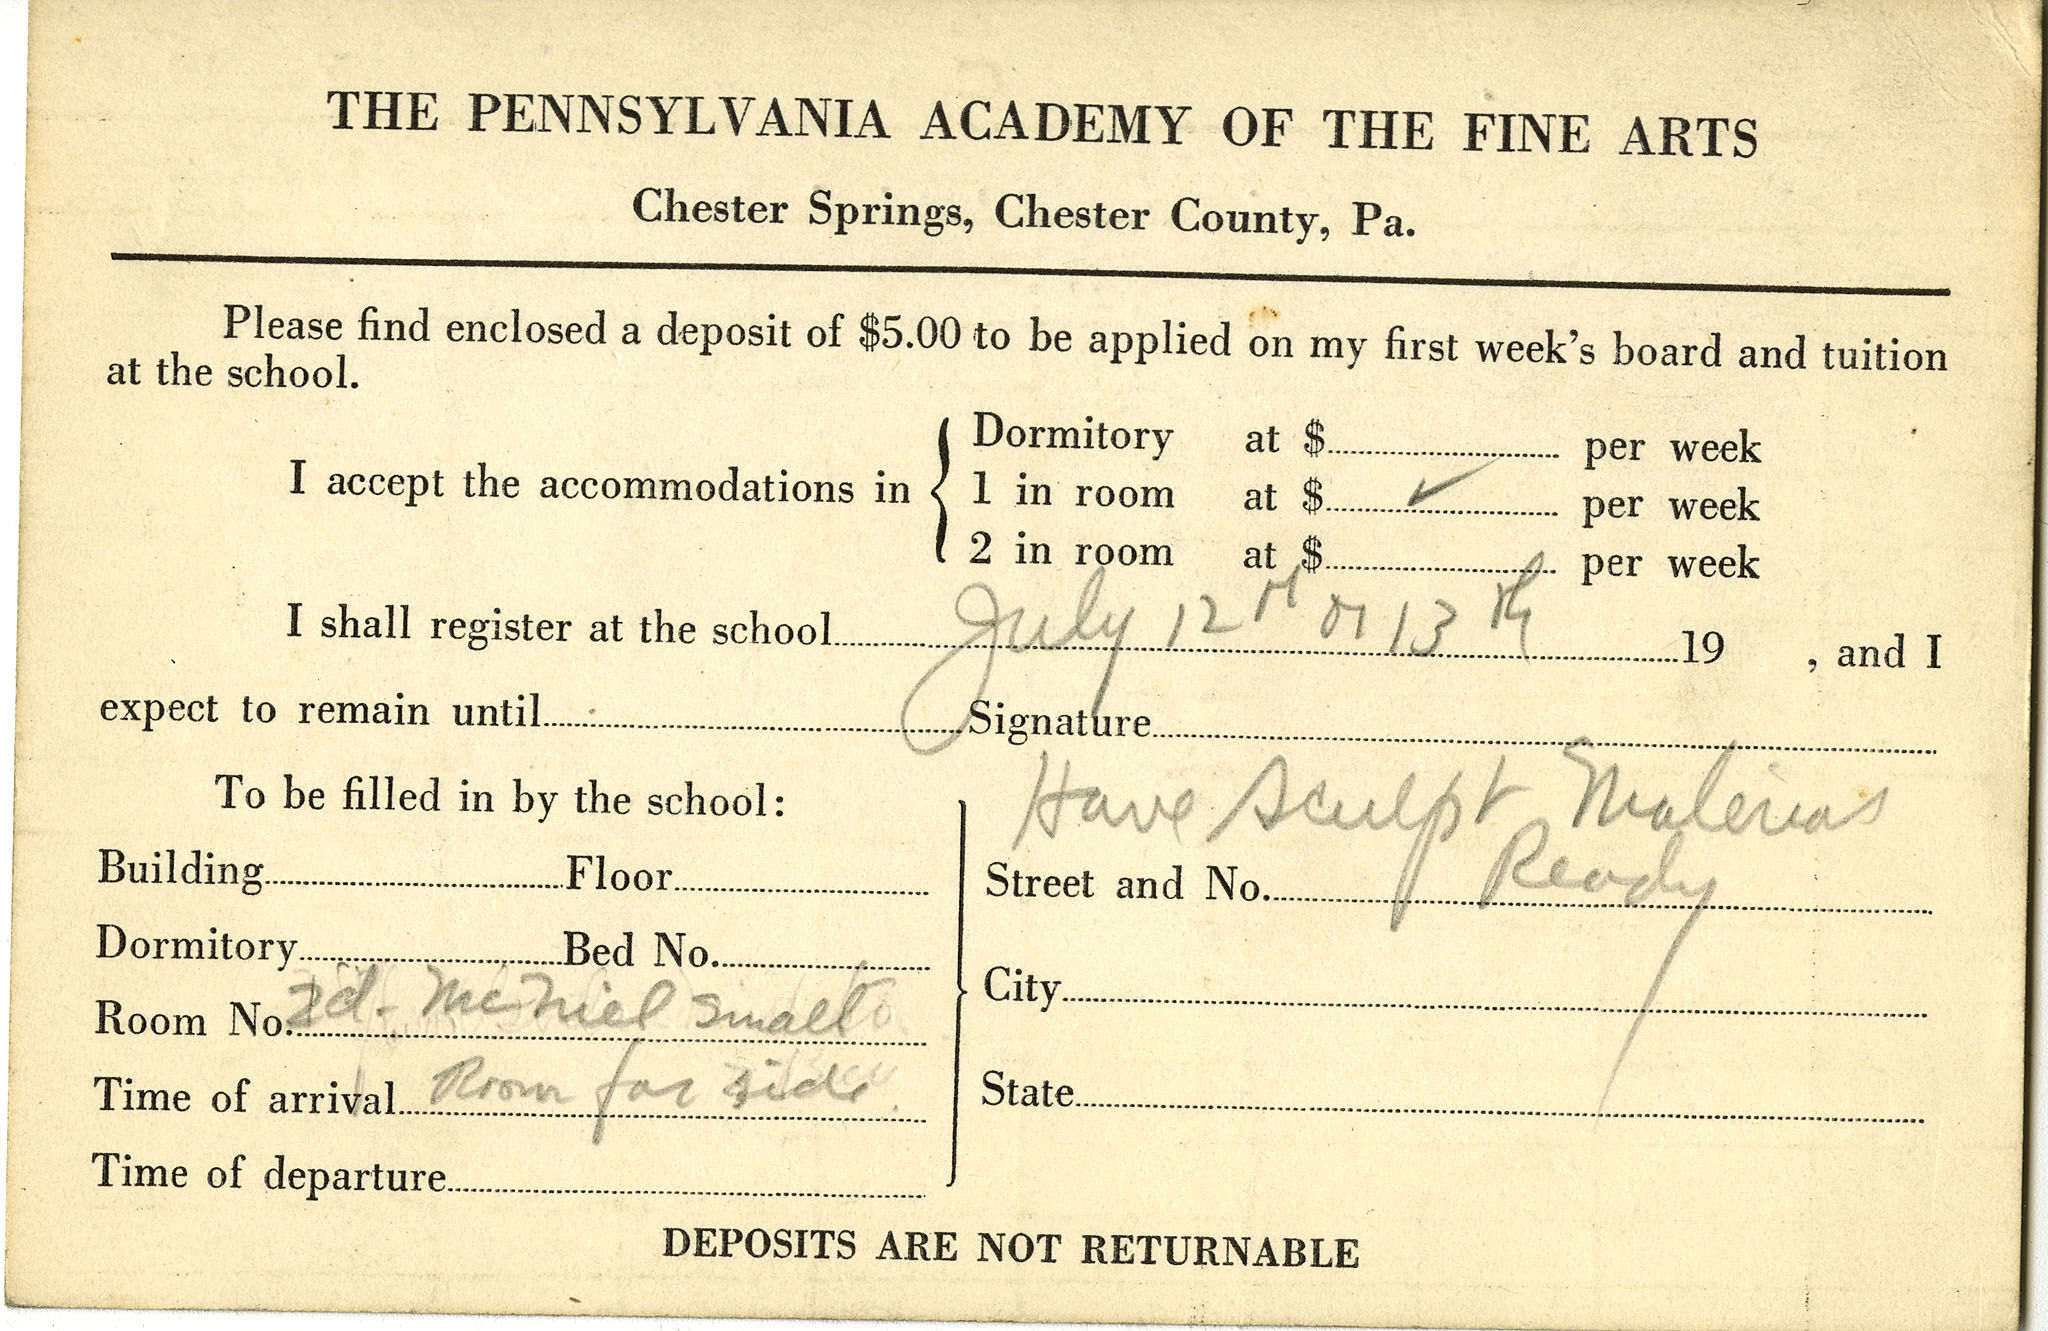 THE PENNSYLVANIA ACADEMY OF THE FINE ARTS
Chester Springs, Chester County, Pa.
Please find enclosed a deposit of $5.00 to be applied on my first week's board and tuition
at the school.
I accept the accommodations in
Dormitory at $ per week
1 in room at $ ✓ per week
2 in room at $ per week
I shall register at the school July 12th or 13th 19 , and I
expect to remain until Signature
Have Sculpt Materias
Ready
To be filled in by the school:
Building Floor
Dormitory Bed No.
Room No. 2d - McNiel small
Time of arrival Room for side
Time of departure
Street and No.
City
State
DEPOSITS ARE NOT RETURNABLE